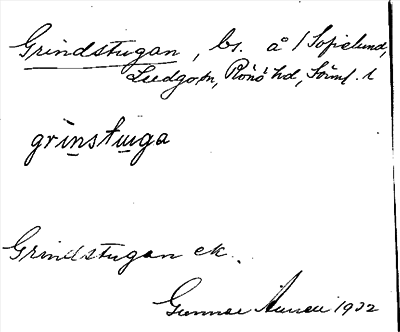 Grindstugan, bs. å /Sofielund,
Ludgo sn, Rönö hd, Söml. l
grinstuga
Grindstugan ek.
Gunnar 1932